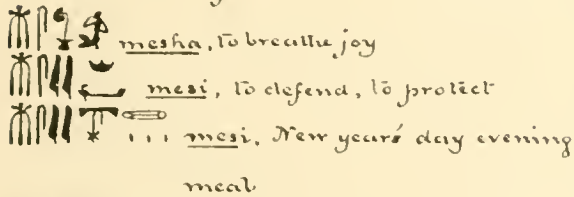 mesha, to breathe joy
mesi, to defend, to protect
mesi, New years' day evening
meal